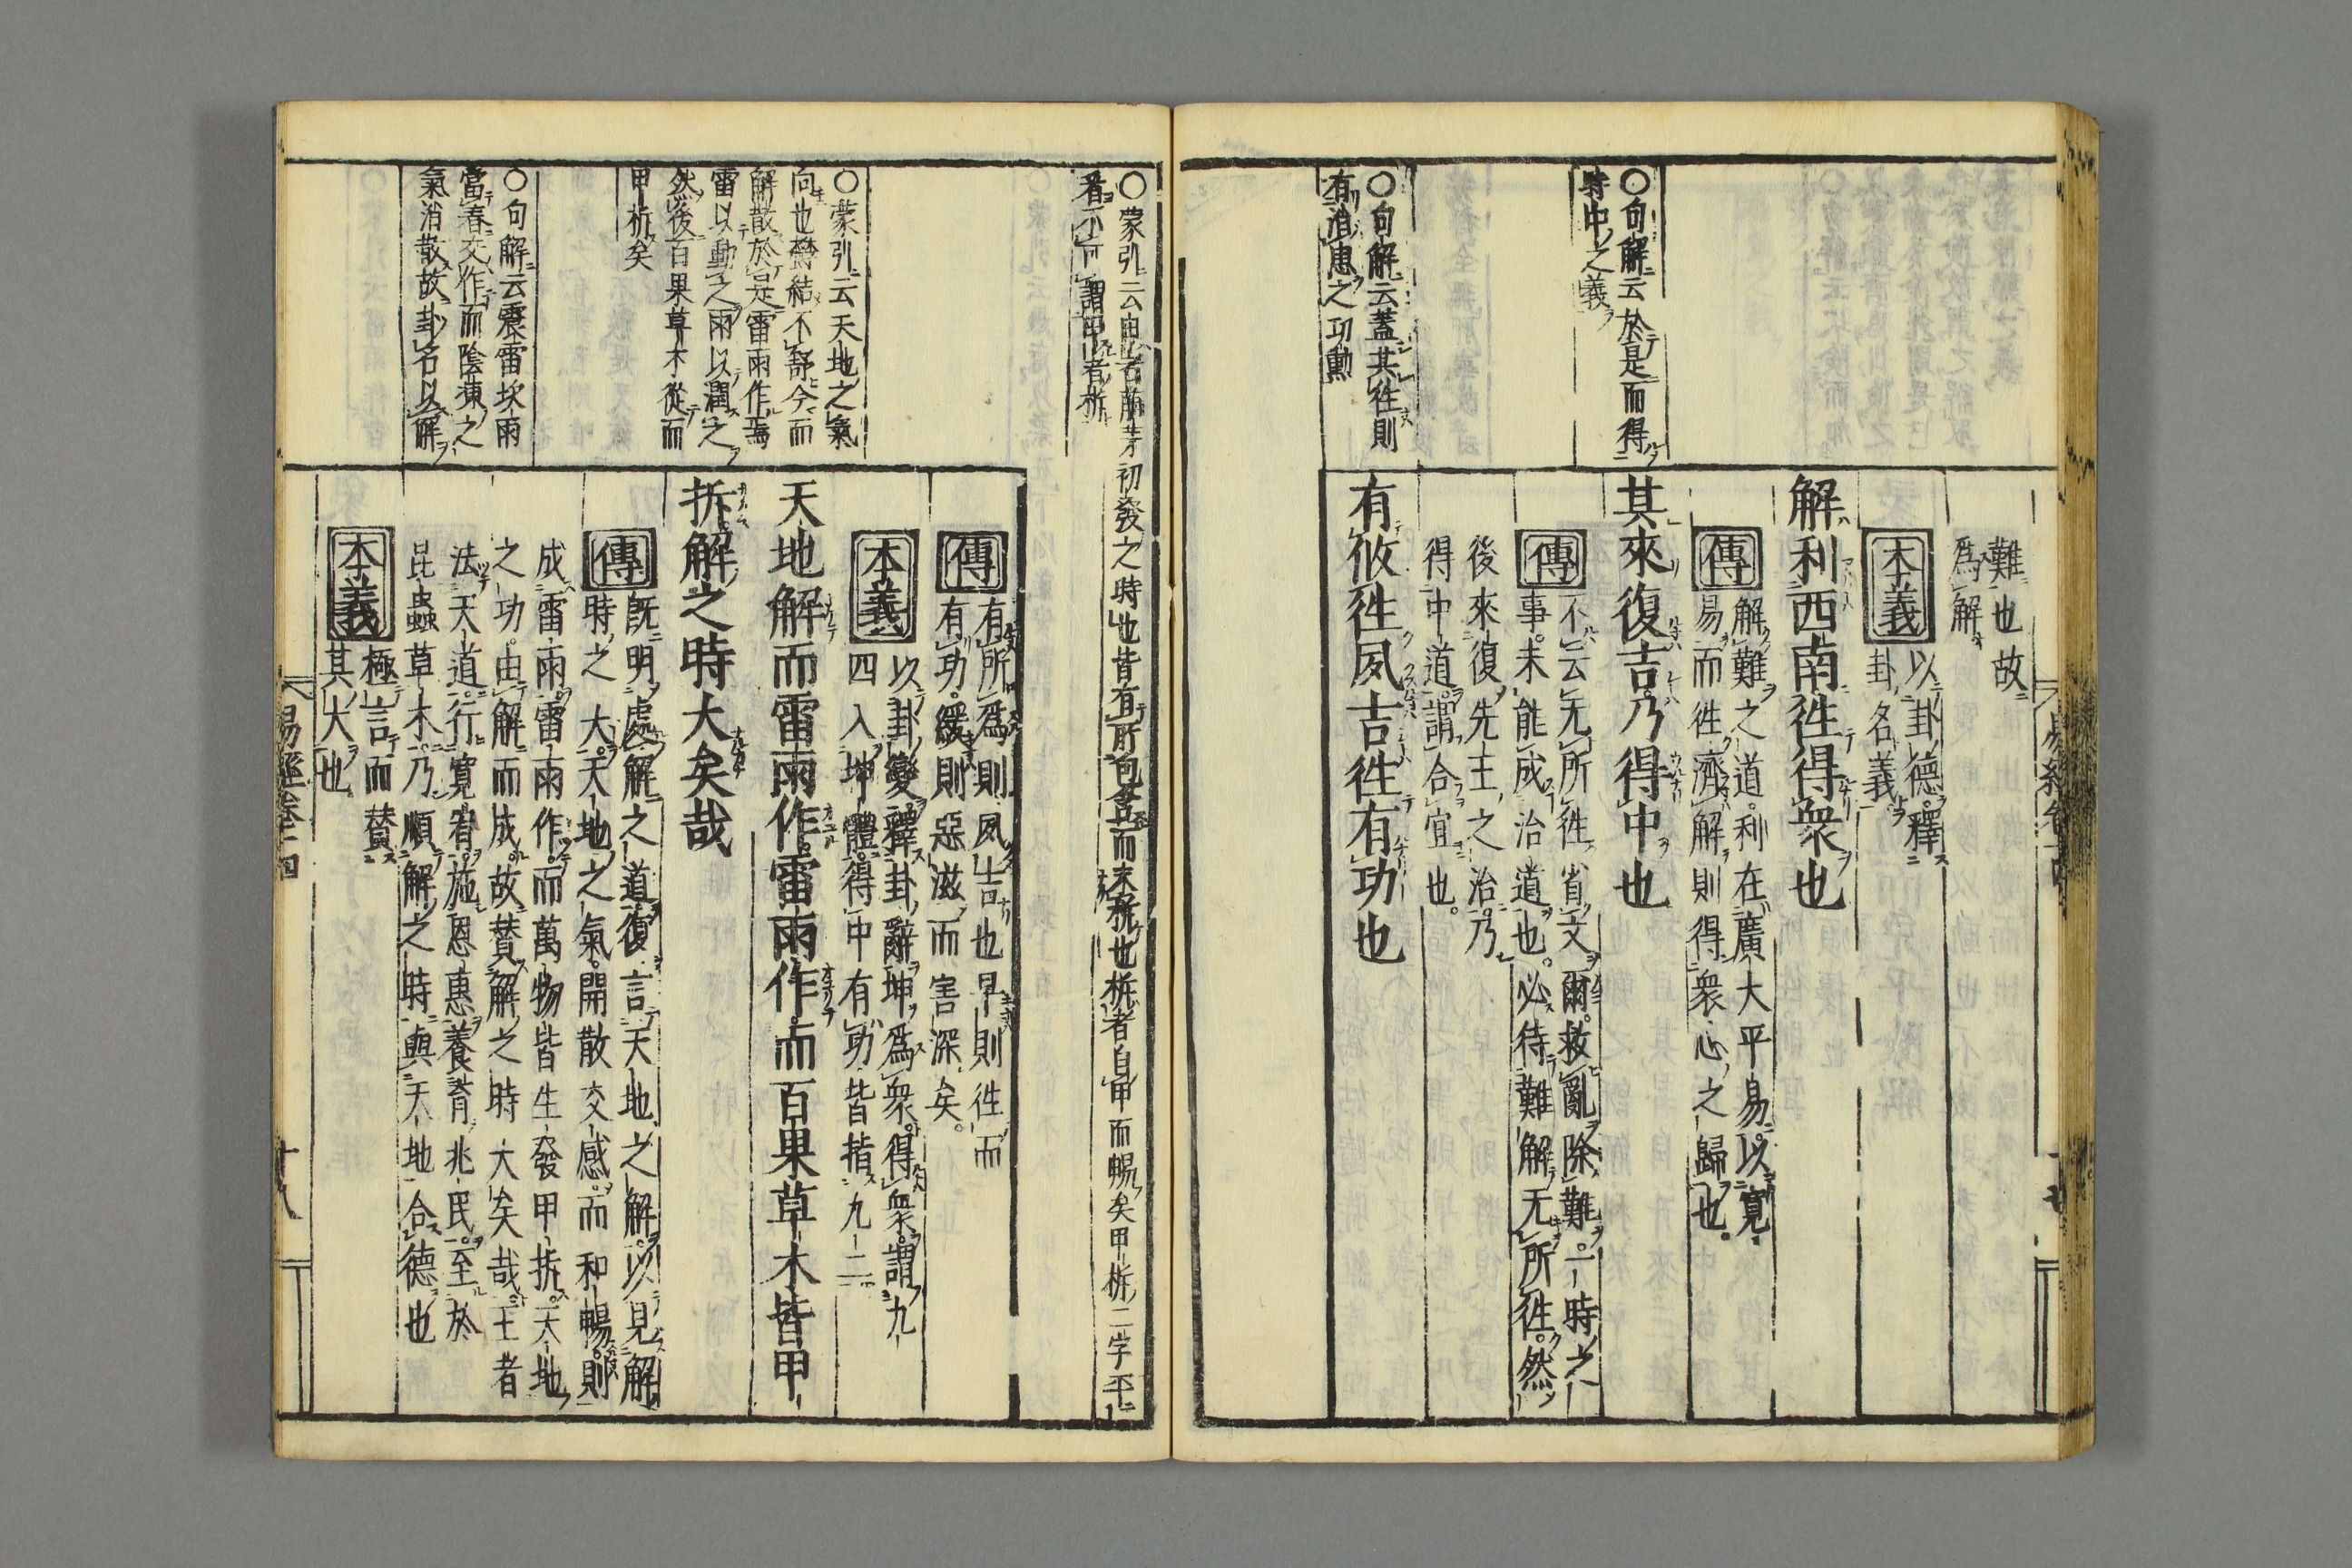 難也故
爲解
本義
以卦德釋
卦名義
解利西南徃得衆也
傳
解難之道利在廣大平易以寬
易而徃濟解則得衆心之歸也。
其來復吉乃得中也
傳
不云无所徃省文爾救亂除難一時之
事未能成治道也。必待難解无所徃然
後來復先王之治乃
得中道謂合宜也。
有攸徃夙吉徃有功也
〇句解云於是而得
時中之義
〇句解云蓋其徃則
有消患之功勳
〇蒙引云甲者萠芽初發之時也皆有所包含而未拆也柝者自甲而暢矣甲柝二字平
看不可謂甲者柝
傳
有所爲則夙吉也早則徃而
有功緩則惡滋而害深矣。
本義
以卦變釋卦辭坤爲衆得衆謂九
四入坤體得中有功皆指九二
天地解而雷雨作雷雨作而百果草木皆甲
拆解之時大矣哉
傳
既明處解之道復言天地之解以見解
時之大天地之氣開散交感而和暢則
成雷雨雷雨作而萬物皆生發甲拆天地
之功由解而成故賛解之時大矣哉王者
法天道行寬宥施恩惠養育兆民至於
昆蟲草木乃順解之時與天地合德也
本義
極言而賛
其大也
〇蒙引云天地之氣
向也欝結不舒今而
解散於是雷雨作焉
雷以動之雨以潤之
然後百果草木從而
甲柝矣
〇句解云震雷坎雨
當春交作而陰凍之
氣消散故卦名以解
易經卷十四
十八